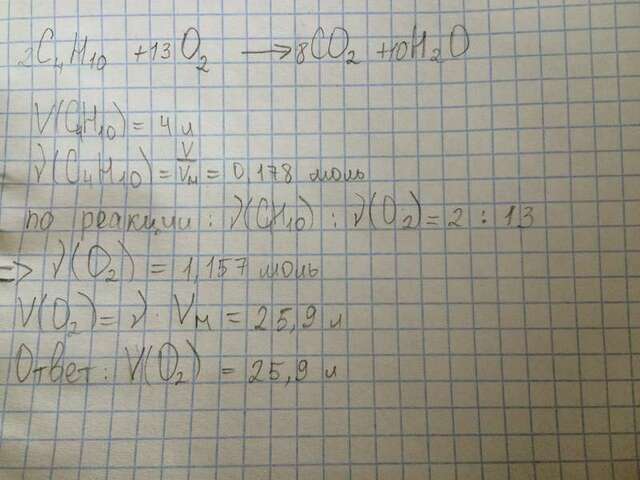 2C₄H₁₀ + 13O₂ → 8CO₂ + 10H₂O
V(C₄H₁₀) = 4 л
ν(C₄H₁₀) = V/Vм = 0,178 моль
по реакции: ν(CH₁₀) : ν(O₂) = 2 : 13
=> ν(O₂) = 1,157 моль
V(O₂) = ν · Vм = 25,9 л
Ответ: V(O₂) = 25,9 л